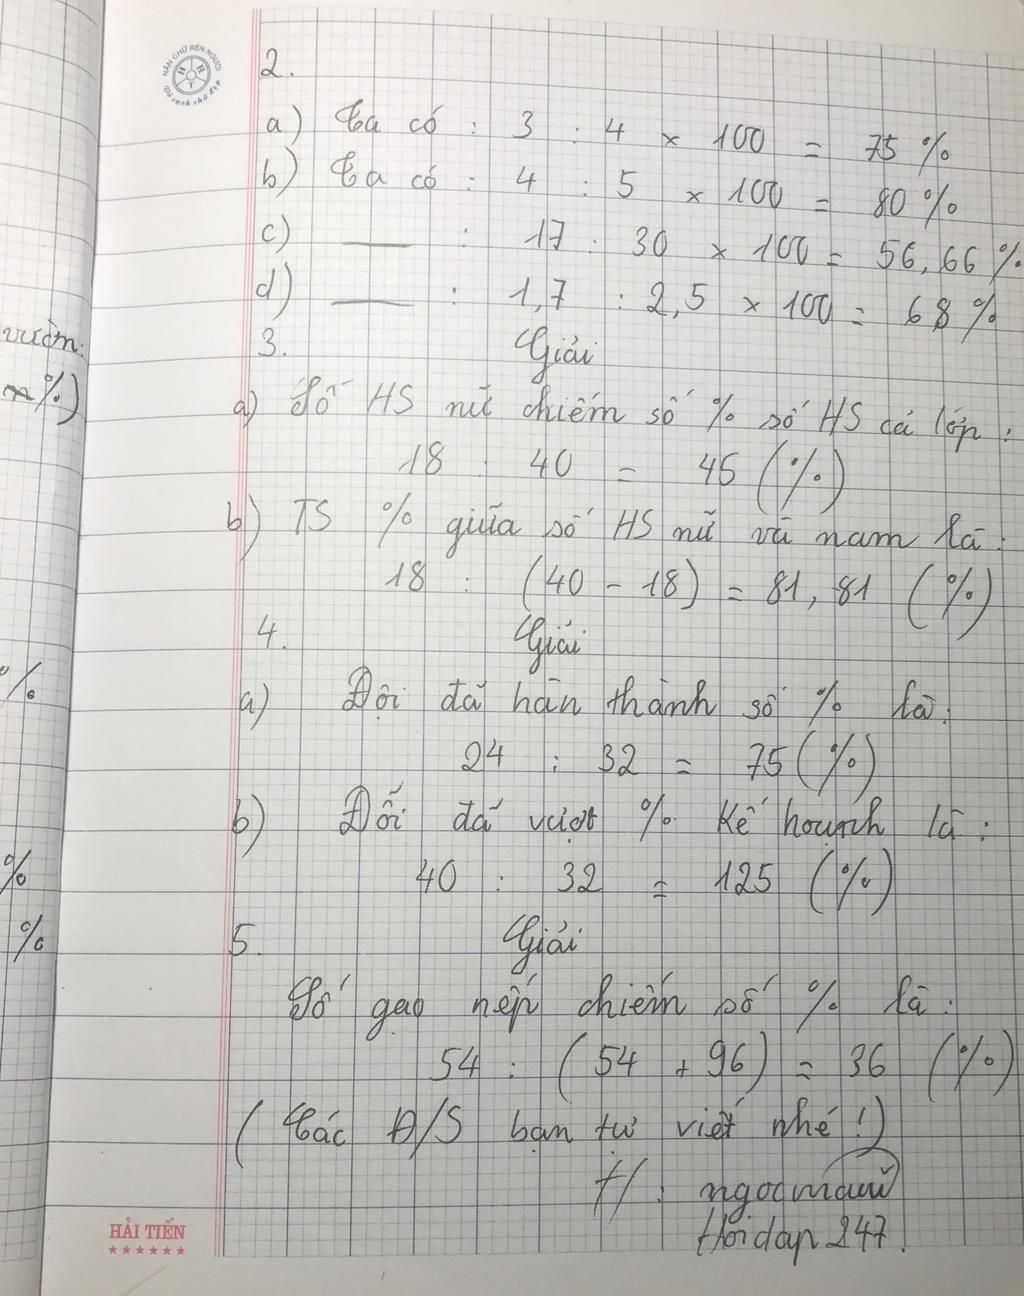 NẮN CHỮ RÈN NGƯỜI
H H T
Vở sạch chữ đẹp
2.
a) Ta có : 3 : 4 x 100 = 75 %
b) Ta có : 4 : 5 x 100 = 80 %
c) —— : 17 : 30 x 100 = 56,66 %
d) —— : 1,7 : 2,5 x 100 = 68 %
vườn:
3. Giải
%)
a) Số HS nữ chiếm số % số HS cả lớp :
18 : 40 = 45 (%)
b) TS % giữa số HS nữ và nam là :
18 : (40 - 18) = 81,81 (%)
4. Giải
%
a) Đội đã hàn thành số % là :
24 : 32 = 75 (%)
b) Đối đã vượt % kế hoạnh là :
%
40 : 32 = 125 (%)
%
5. Giải
Số gạo nếp chiếm số % là :
54 : (54 + 96) = 36 (%)
( Các Đ/S bạn tự viết nhé !)
Hoidap 247.
HẢI TIẾN